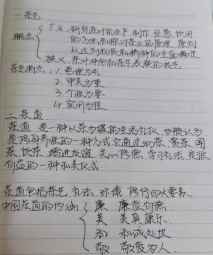 一.茶艺
概念
广义,研究茶叶的生产.制作.经营.饮用
的方法和探讨茶业的原理.原则
以达到物质和精神的全面满足
狭义,茶叶冲泡和茶艺表演的技艺.
茶艺 1.哲理为先
2.审美为重
3.个性为要
4.实用为准
二.茶道
茶道是一种以茶为媒的生活礼仪,也被认为
是修身养性的一种方式它通过沏茶、赏茶、闻
茶、饮茶.增进友谊,美心修德,学习礼法,是很
有益的一种和美仪式
茶道包括茶艺、礼法、环境、修行四大要素.
中国茶道的内涵
廉 廉俭育德
美 美真康乐.
和 和诚处世
敬 敬爱为人